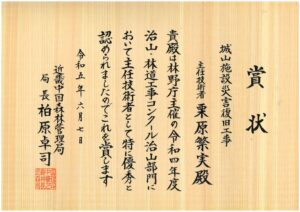 賞状
城山施設災害復旧工事
主任技術者 栗原繁実殿
貴殿は林野庁主催の令和四年度
治山・林道工事コンクール治山部門に
おいて主任技術者として特に優秀と
認められましたのでこれを賞します
令和五年六月七日
近畿中国森林管理局
局長 柏原卓司